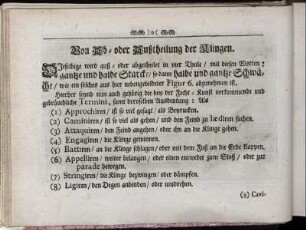 Von Ab- oder Außtheilung der Klingen.
Dieselbige wird auß- oder abgetheilet in vier Theile / mit diesen Worten:
gantze und halbe Starcke / so dann halbe und gantze Schwä-
che / wie ein solches aus hier nebengesetzter Figur 6. abzunehmen ist.
Hierbey seynd nun auch gehörig die bey der Fecht-Kunst vorkommende und
gebräuchliche Termini, samt derselben Ausdeutung: Als
(1) Approchiren / ist so viel gesagt / als Beyrucken.
(2) Caminiren / ist so viel als gehen / und den Feind zu lædiren suchen.
(3) Attaquiren / den Feind angehen / oder ihn an die Klinge gehen.
(4) Engagiren / die Klinge gewinnen.
(5) Battiren / an die Klinge schlagen / oder mit dem Fuß an die Erde klappen.
(6) Appelliren / weiter belangen / oder einen entweder zum Stoß / oder zur
parade bewegen.
(7) Stringiren / die Klinge bezwingen / oder dämpffen.
(8) Ligiren / den Degen anbinden / oder umdrehen.
(9) Cavi-